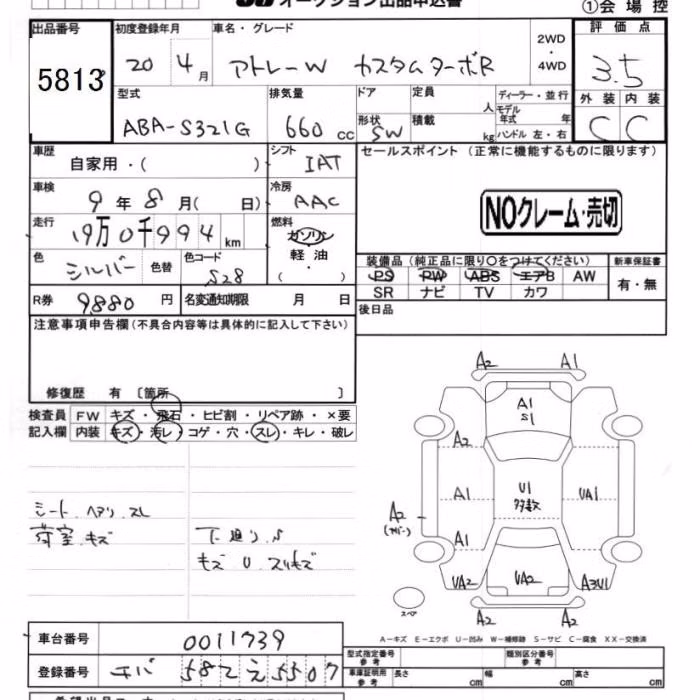 オークション出品申込書 ①会場控
出品番号 初度登録年月 車名・グレード 2WD・4WD 評価点
5813 20 4月 アトレーW カスタムターボR 3.5
型式 排気量 ドア 定員 人 ディーラー・並行 外装 内装
ABA-S321G 660cc 形状 SW 積載 kg モデル年式 年 ハンドル 左・右 C C
車歴 自家用・( ) シフト IAT セールスポイント (正常に機能するものに限ります)
車検 9年8月( 日) 冷房 AAC
NOクレーム・売切
走行 19万0千994km 燃料 ガソリン 軽油 ( )
色 シルバー 色替 色コード S28
装備品 (純正品に限り○をつけてください) 新車保証書
PS PW ABS エアB AW 有・無
SR ナビ TV カワ
R券 9880円 名変通知期限 月 日
後日品
注意事項申告欄(不具合内容等は具体的に記入して下さい)
修復歴 有 〔箇所 〕
検査員 FW キズ・飛石・ヒビ割・リペア跡・×要
記入欄 内装 キズ・汚レ・コゲ・穴・スレ・キレ・破レ
シート.ヘタリ.スレ
荷室.キズ
下廻り.S
キズ U スリキズ
A2 A1
A1
S1
A2
A1 U1 UA1
多数
A2
A1
UA2 UA2 A3U1
A2 A2
スペア
A－キズ E－エクボ U－凹み W－補修跡 S－サビ C－腐食 XX－交換済
車台番号 0011739
登録番号 チバ 582 え 5507
型式指定番号 参考 類別区分番号 参考
車庫証明用 参考 長さ cm 幅 cm 高さ cm